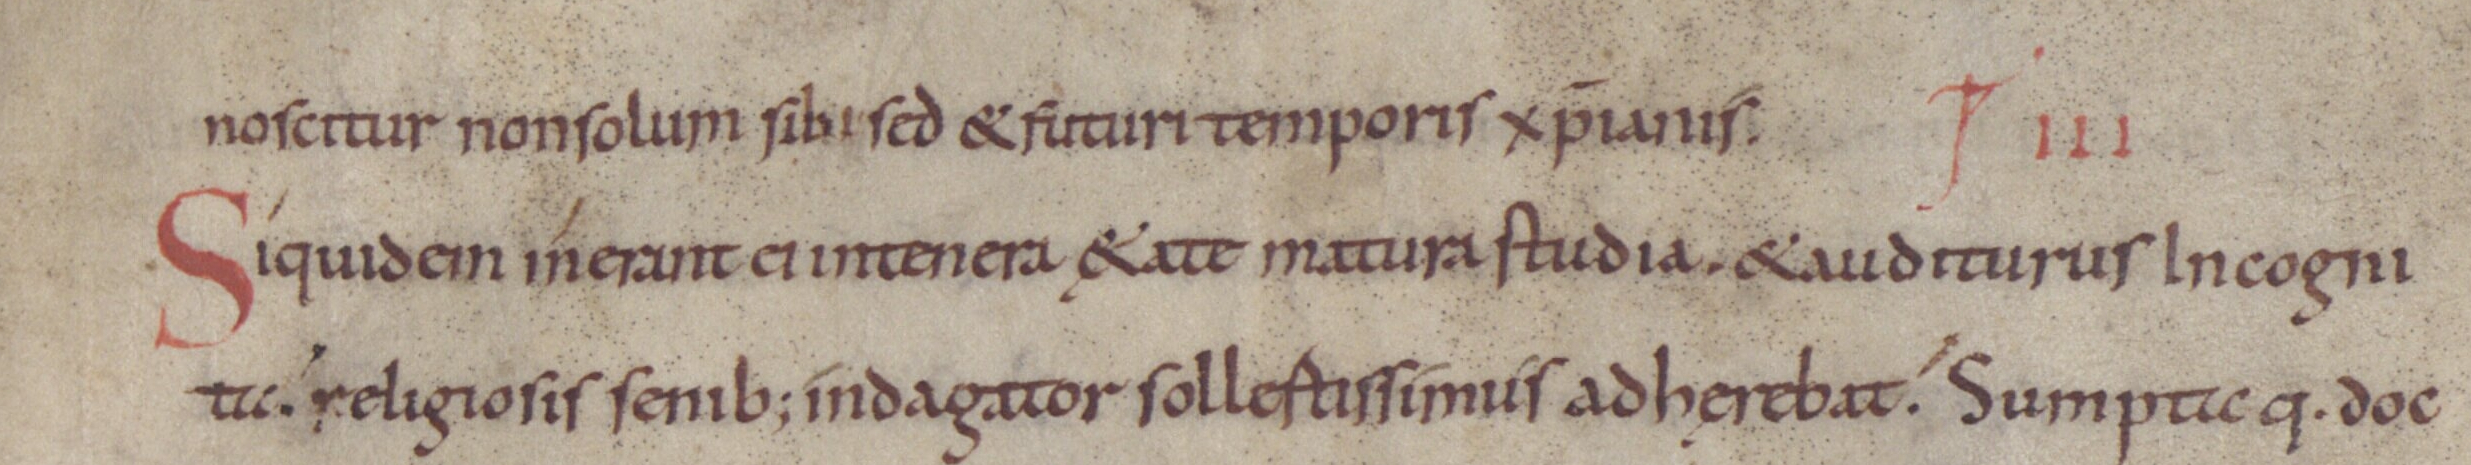 noscitur non solum sibi sed & futuri temporis xp̄ianis. iii
Siquidem inerant ei in tenera &ate matura studia. & auditurus Incogni
ta. religiosis senib; indagator sollestissimus adherebat. Sumptae q. doc